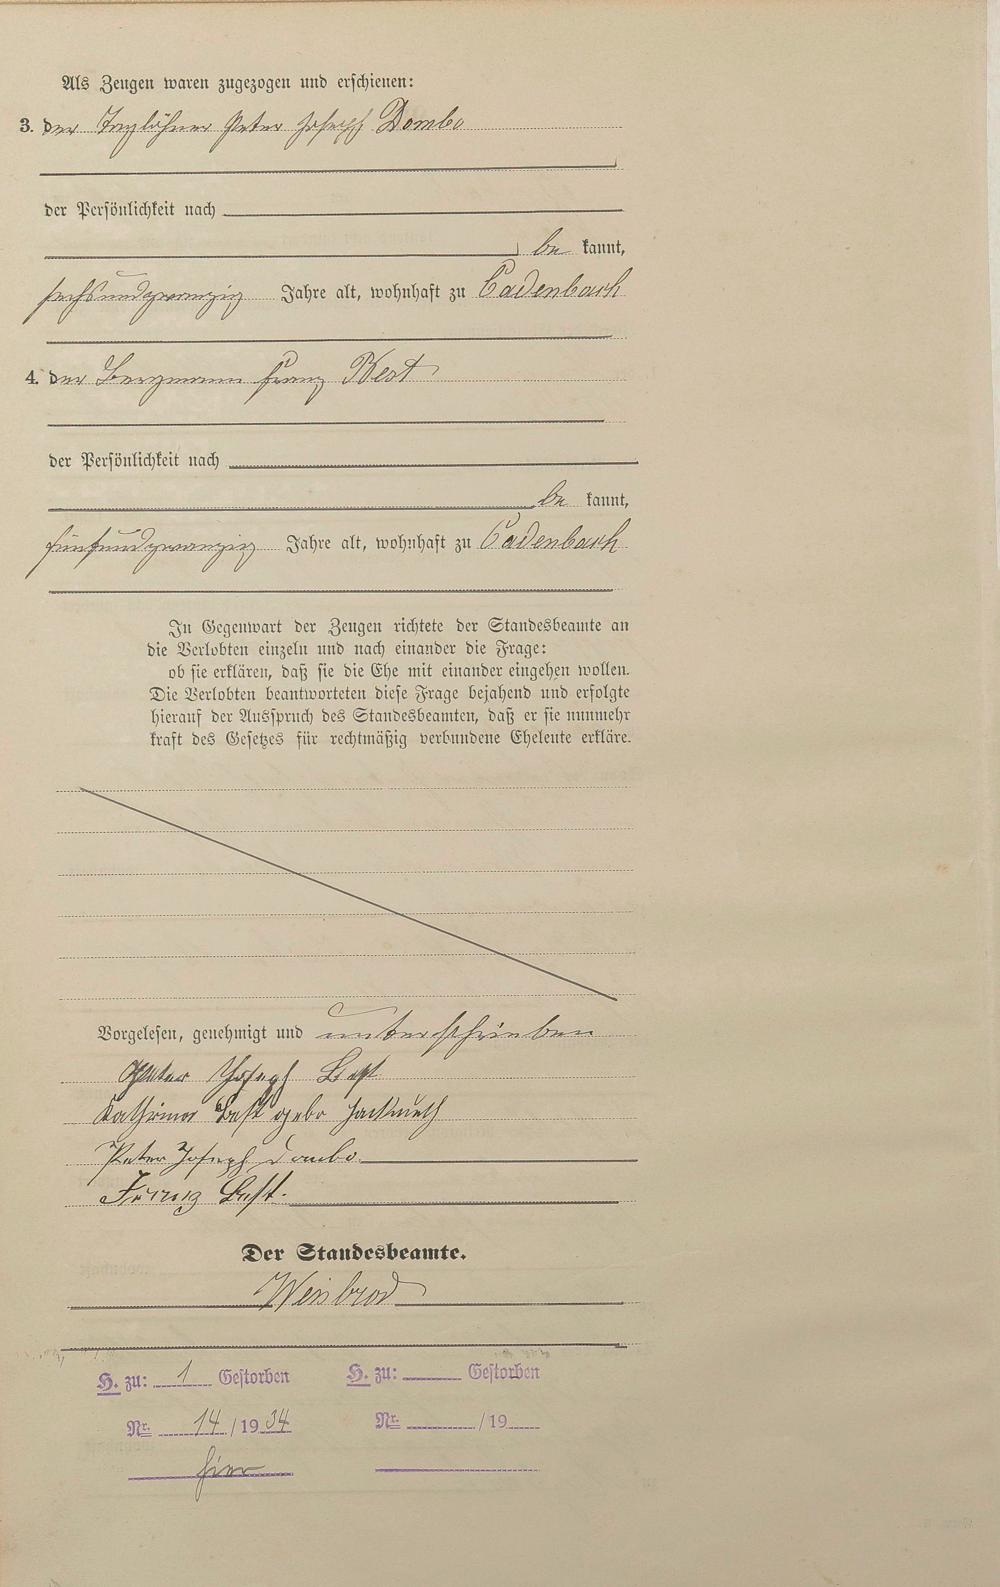 Als Zeugen waren zugezogen und erschienen:
3. der Taglöhner Peter Joseph Dombo
der Persönlichkeit nach
be kannt,
sechsundzwanzig Jahre alt, wohnhaft zu Cadenbach
4. der Bergmann Franz Best
der Persönlichkeit nach
be kannt,
fünfundzwanzig Jahre alt, wohnhaft zu Cadenbach
In Gegenwart der Zeugen richtete der Standesbeamte an
die Verlobten einzeln und nach einander die Frage:
ob sie erklären, daß sie die Ehe mit einander eingehen wollen.
Die Verlobten beantworteten diese Frage bejahend und erfolgte
hierauf der Ausspruch des Standesbeamten, daß er sie nunmehr
kraft des Gesetzes für rechtmäßig verbundene Eheleute erkläre.
Vorgelesen, genehmigt und unterschrieben
Peter Joseph Best
Kathrina Best gebr Hackmeth
Peter Joseph Dombo
Franz Best.
Der Standesbeamte.
Weisbrod
H. zu: 1 Gestorben H. zu: Gestorben
Nr. 14/1934 Nr. /19
hier